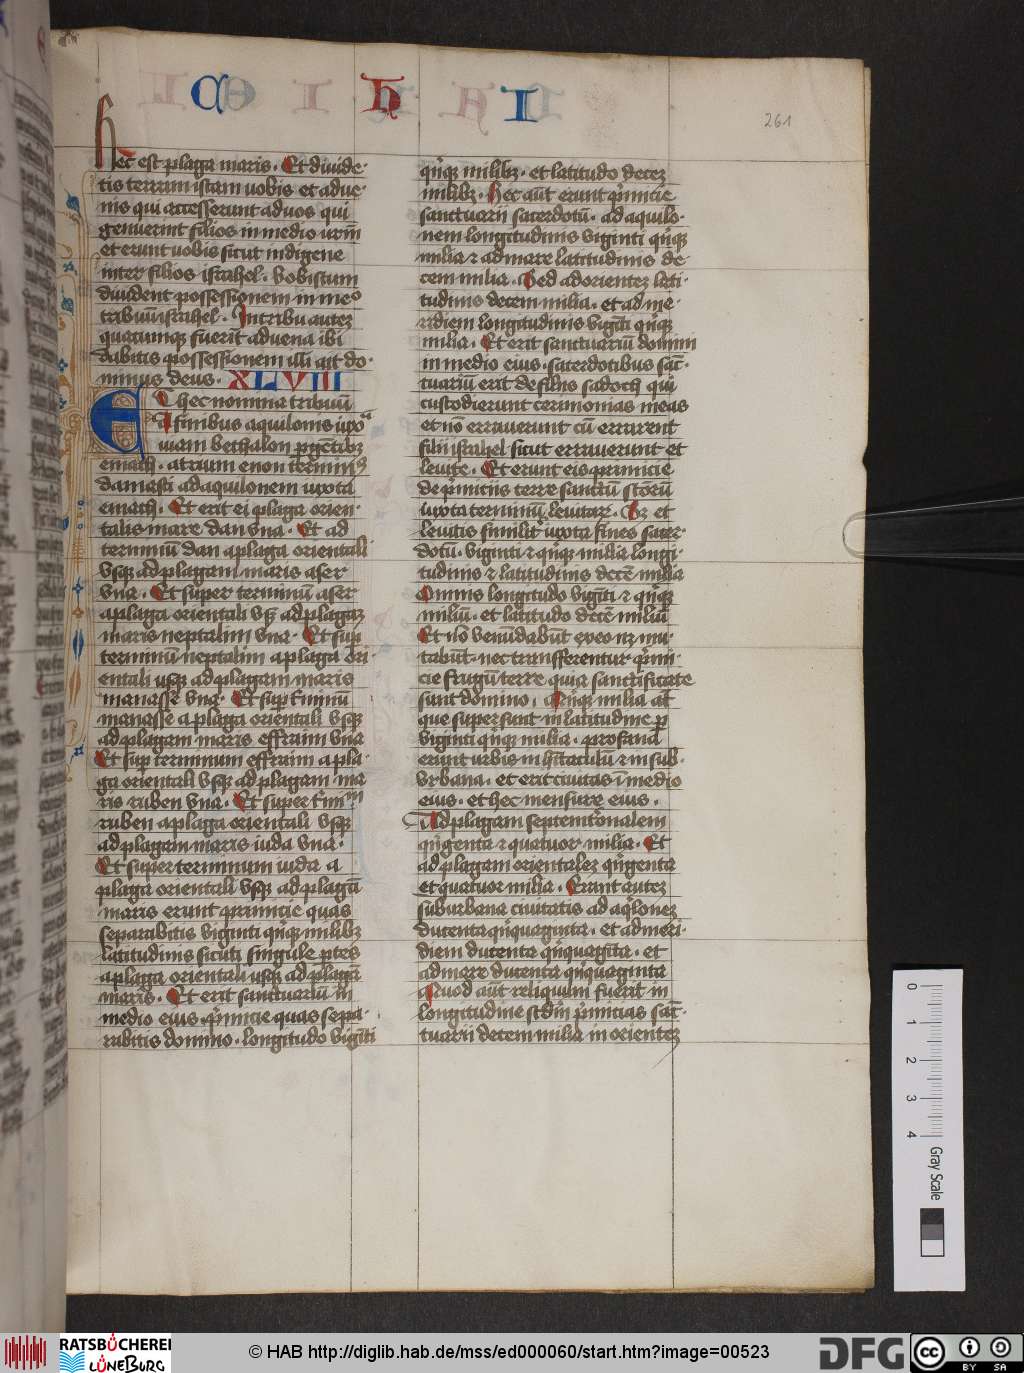 C H I
261
Hec est plaga maris. Et divide-
tis terram istam vobis et adve-
nis qui accesserunt ad vos qui
genuerint filios in medio vrm̄
et erunt vobis sicut indigene
inter filios israhel. Vobiscum
divident possessionem in meᵒ
tribuū israhel. In tribu autez
quacumqꝫ fuerit advena ibi
dabitis possessionem illi ait do-
minus deus. XLVIII
Et hec nomina tribuū
A finibus aquilonis iuxᵃ
viam bethalon ꝑgētibꝫ
emath. atrium enon terminꝰ
damasci ad aquilonem iuxta
emath. Et erit ei plaga orien-
talis mare dan vna. Et ad
terminū dan a plaga orientali
vsqꝫ ad plagam maris aser
vna. Et super terminū aser
a plaga orientali vsqꝫ ad plagaꝫ
maris neptalim vna. Et suꝑ
terminū neptalim a plaga ori-
entali usqꝫ ad plagam maris
manasse vna. Et suꝑ t̄minū
manasse a plaga orientali vsqꝫ
ad plagam maris effraim vna
Et suꝑ terminum effraim a pla-
ga orientali vsqꝫ ad plagam ma
ris ruben vna. Et super t̄minᵐ
ruben a plaga orientali vsqꝫ
ad plagam maris iuda vna.
Et super terminum iuda a
plaga orientali vsqꝫ ad plagā
maris erunt primicie quas
separabitis viginti qͥnqꝫ milibꝫ
latitudinis sicuti singule ꝑtes
a plaga orientali usqꝫ ad plagā
maris. Et erit sanctuariū in
medio eius pͥmicie quas sepa-
rabitis domino. longitudo vigīti
qͥnqꝫ milibꝫ. et latitudo decez
milibꝫ. Hec aūt erunt pͥmicie
sanctuarii sacerdotū. ad aquilo-
nem longitudinis viginti qͥnqꝫ
milia ⁊ ad mare latitudinis de-
cem milia. Sed ad orientez lati-
tudinis decem milia. et ad me-
ridiem longitudinis vigīti qͥnqꝫ
milia. Et erit sanctuariū domini
in medio eius. sacerdotibus sāc-
tuariū erit de filiis sadoch qui
custodierunt cerimonias meas
et nō erraverunt cū errarent
filii israhel sicut erraverunt et
levite. Et erunt eis primicie
de pͥmiciis terre sanctū sctōrū
iuxta terminū levitar. Sꝫ et
levitis similiter iuxta fines sacer-
dotū. viginti ⁊ qͥnqꝫ milia longi-
tudinis ⁊ latitudinis decē milia
Omnis longitudo vigīti ⁊ qͥnqꝫ
miliū. et latitudo decē miliū
Et nō venūdabūt ex eo neqꝫ mu-
tabūt. nec transferentur pͥmi-
cie frugū terre quia sanctificate
sunt domino. Quīqꝫ milia aūt
que supersunt in latitudine ꝑ
viginti qͥnqꝫ milia. profana
erunt urbis in hītaculū ⁊ in sub-
vrbana. et erit civitas ī medio
eius. et hec mensure eius.
Ad plagam septemtrionalem
qͥngenta ⁊ quatuor milia. Et
ad plagam orientalez qͥngenta
et quatuor milia. Erant autez
suburbana civitatis ad aqͥlonez
ducenta qͥnquaginta. et ad meri-
diem ducenta qͥnquagīta. et
ad mare ducenta qͥnquaginta
Quod aūt reliquum fuerit in
longitudine scdm̄ pͥmicias sāc-
tuarii decem milia in orientez
0 1 2 3 4
Gray Scale
RATSBÜCHEREI
LÜNEBURG
© HAB http://diglib.hab.de/mss/ed000060/start.htm?image=00523
DFG
cc BY SA